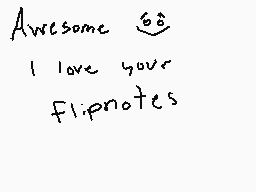 Awesome
I love your
flipnotes